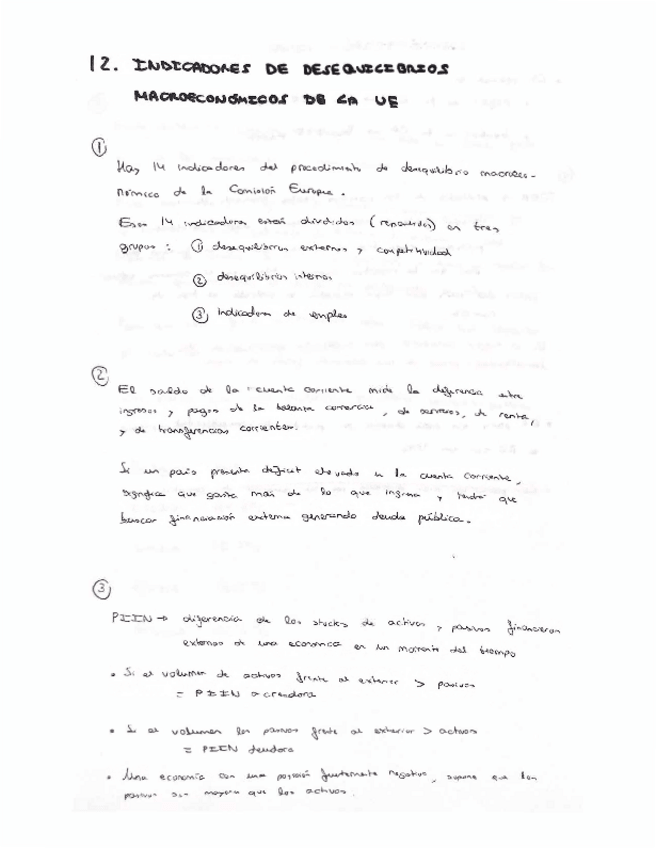 12. INDICADORES DE DESEQUILIBRIOS
MACROECONÓMICOS DE LA UE
①
Hay 14 indicadores del procedimiento de desequilibrio macroeco-
nómico de la Comisión Europea.
Esos 14 indicadores están divididos (repartidos) en tres
grupos: ① desequilibrios externos y competitividad
② desequilibrios internos
③ indicadores de empleo
②
El saldo de la cuenta corriente mide la diferencia entre
ingresos y pagos de la balanza comercial, de servicios, de renta,
y de transferencias corrientes.
Si un país presenta déficit elevado en la cuenta corriente,
significa que gasta más de lo que ingresa y tendrá que
buscar financiación externa generando deuda pública.
③
PIIN → diferencia de los stocks de activos y pasivos financieros
externos de una economía en un momento del tiempo
• Si el volumen de activos frente al exterior > pasivos
= PIIN acreedora
• Si el volumen los pasivos frente al exterior > activos
= PIIN deudora
• Una economía con una posición fuertemente negativa, supone que los
pasivos son mayores que los activos.